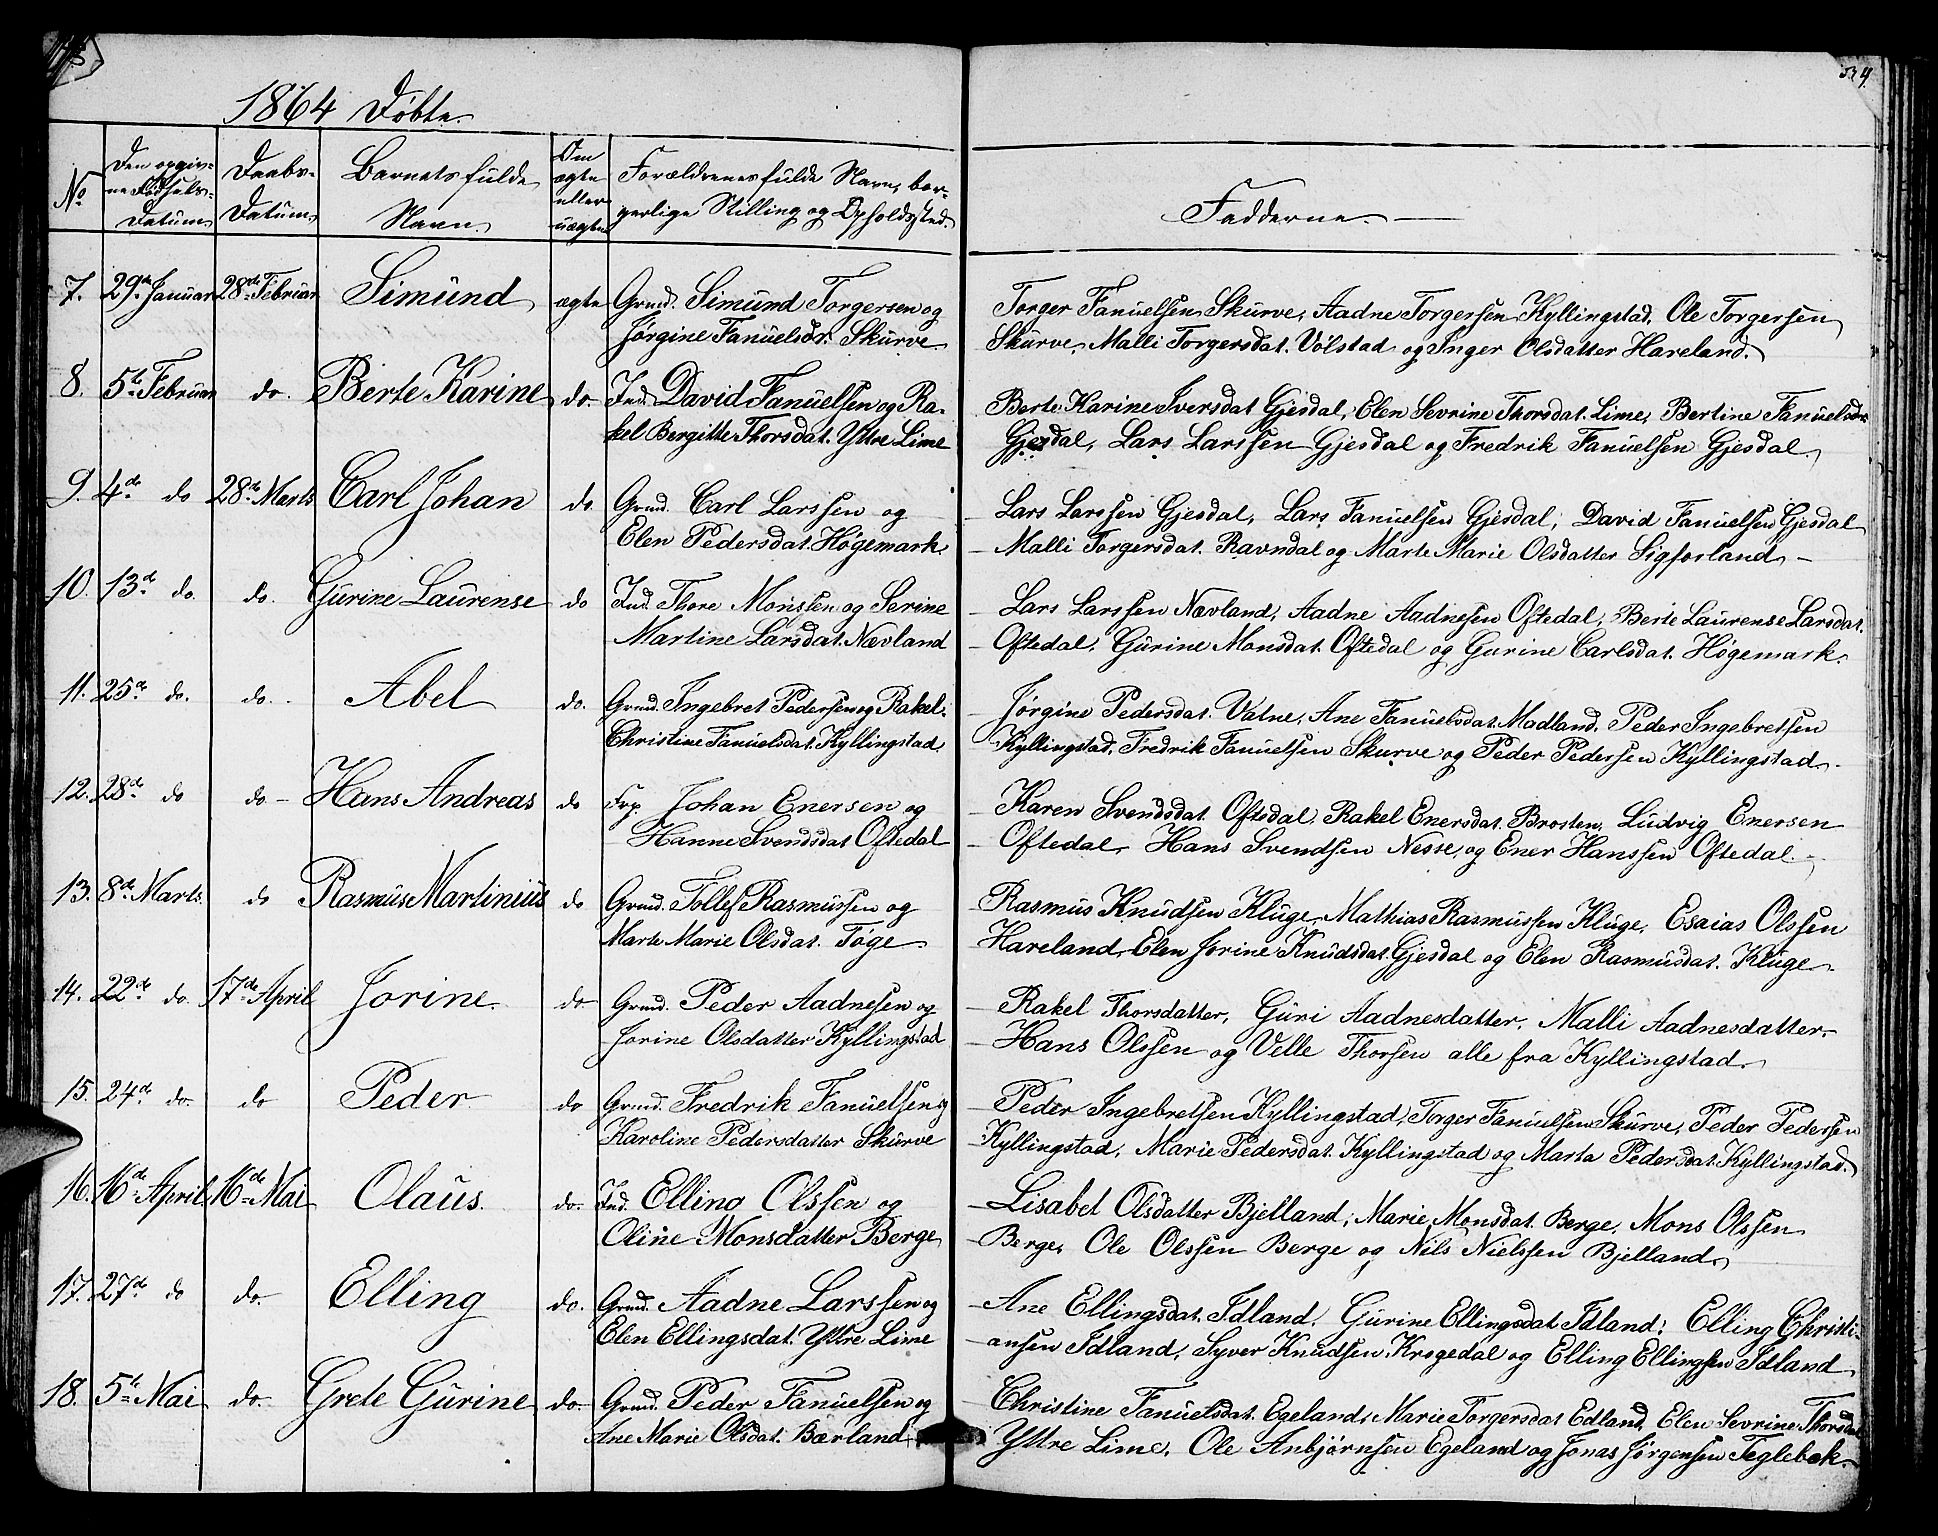 1864 Døbte.
No
Den opgivne Fødsels-Datum.
Daabs-Datum.
Barnets fulde Navn.
Om ægte eller uægte
Forældrenes fulde Navn, borgerlige Stilling og Opholdssted.
Fadderne.
7. 29de Januar 28de Februar Simund ægte Grmd. Simund Torgersen og
Jørgine Fanuelsdr. Skurve
Torger Fanuelsen Skurve, Aadne Torgersen Kyllingstad, Ole Torgersen
Skurve, Malli Torgersdat. Volstad og Inger Olsdatter Hareland.
8. 5te Februar do. Berte Karine do. Ind. David Fanuelsen og Ra-
kel Bergitte Thorsdat. Yttre Lime
Berte Karine Iversdat Gjesdal, Elen Sevrine Thorsdat. Lime, Bertine Fanuelsdr
Gjesdal, Lars Larssen Gjesdal og Fredrik Fanuelsen Gjesdal.
9. 4de do 28de Marts Carl Johan do Grmd. Carl Larssen og
Elen Pedersdat. Høgemark.
Lars Larssen Gjesdal, Lars Fanuelsen Gjesdal, David Fanuelsen Gjesdal
Malli Torgersdat. Ravndal og Marte Marie Olsdatter Sigforland
10. 13de do. do. Gurine Laurense do Ind. Thore Monssen og Serine
Martine Larsdat. Nævland
Lars Larssen Nævland, Aadne Aadnesen Oftedal, Berte Laurense Larsdat.
Oftedal, Gurine Monsdat. Oftedal og Gurine Carlsdat. Høgemark.
11. 25de do. do. Abel do. Grmd. Ingebret Pedersen og Rakel
Christine Fanuelsdat. Kyllingstad
Jørgine Pedersdat. Vatne, Ane Fanuelsdat. Madland, Peder Ingebretsen
Kyllingstad, Fredrik Fanuelsen Skurve og Peder Pedersen Kyllingstad
12. 28de do do Hans Andreas do Frp. Johan Enersen og
Hanne Svendsdat Oftedal
Karen Svendsdat. Oftedal, Rakel Enersdat. Brosten, Ludvig Enersen
Oftedal, Hans Svendsen Nesse, og Ener Hanssen Oftedal.
13. 8de Marts. do Rasmus Martinius do Grmd. Tollef Rasmussen og
Marte Marie Olsdat. Tøge
Rasmus Knudsen Kluge, Mathias Rasmussen Kluge, Esaias Olssen
Hareland, Elen Jorine Knudsdat. Gjesdal og Elen Rasmusdat. Kluge.
14. 22de do. 17de April Jorine do Grmd. Peder Aadnesen og
Jorine Olsdatter Kyllingstad
Rakel Thorsdatter, Guri Aadnesdatter, Malli Aadnesdatter,
Hans Olssen og Velle Thorsen alle fra Kyllingstad.
15. 24de do. do Peder do Grmd. Fredrik Fanuelsen og
Karoline Pedersdatter Skurve
Peder Ingebretsen Kyllingstad, Torger Fanuelsen Skurve, Peder Pedersen
Kyllingstad, Marie Pedersdat. Kyllingstad og Marta Pedersdat. Kyllingstad.
16. 16de April. 16de Mai Olaus. do. Ind. Elling Olssen og
Oline Monsdatter Berge
Lisabet Olsdatter Bjelland, Marie Monsdat. Berge, Mons Olssen
Berge, Ole Olssen Berge og Nils Nielssen Bjelland.
17. 27de do do. Elling do. Grmd. Aadne Larssen og
Elen Ellingsdat. Yttre Lime
Ane Ellingsdat. Idland, Gurine Ellingsdat Idland, Elling Christi-
ansen Idland, Syver Knudsen Krogedal og Elling Ellingsen Idland
18. 5te Mai do. Grete Gurine do. Grmd. Peder Fanuelsen og
Ane Marie Olsdat. Bærland
Christine Fanuelsdat. Egeland, Marie Torgersdat Edland, Elen Sevrine Thorsdat
Yttre Lime, Ole Anbjørnsen Egeland og Jonas Jørgensen Teglebak.